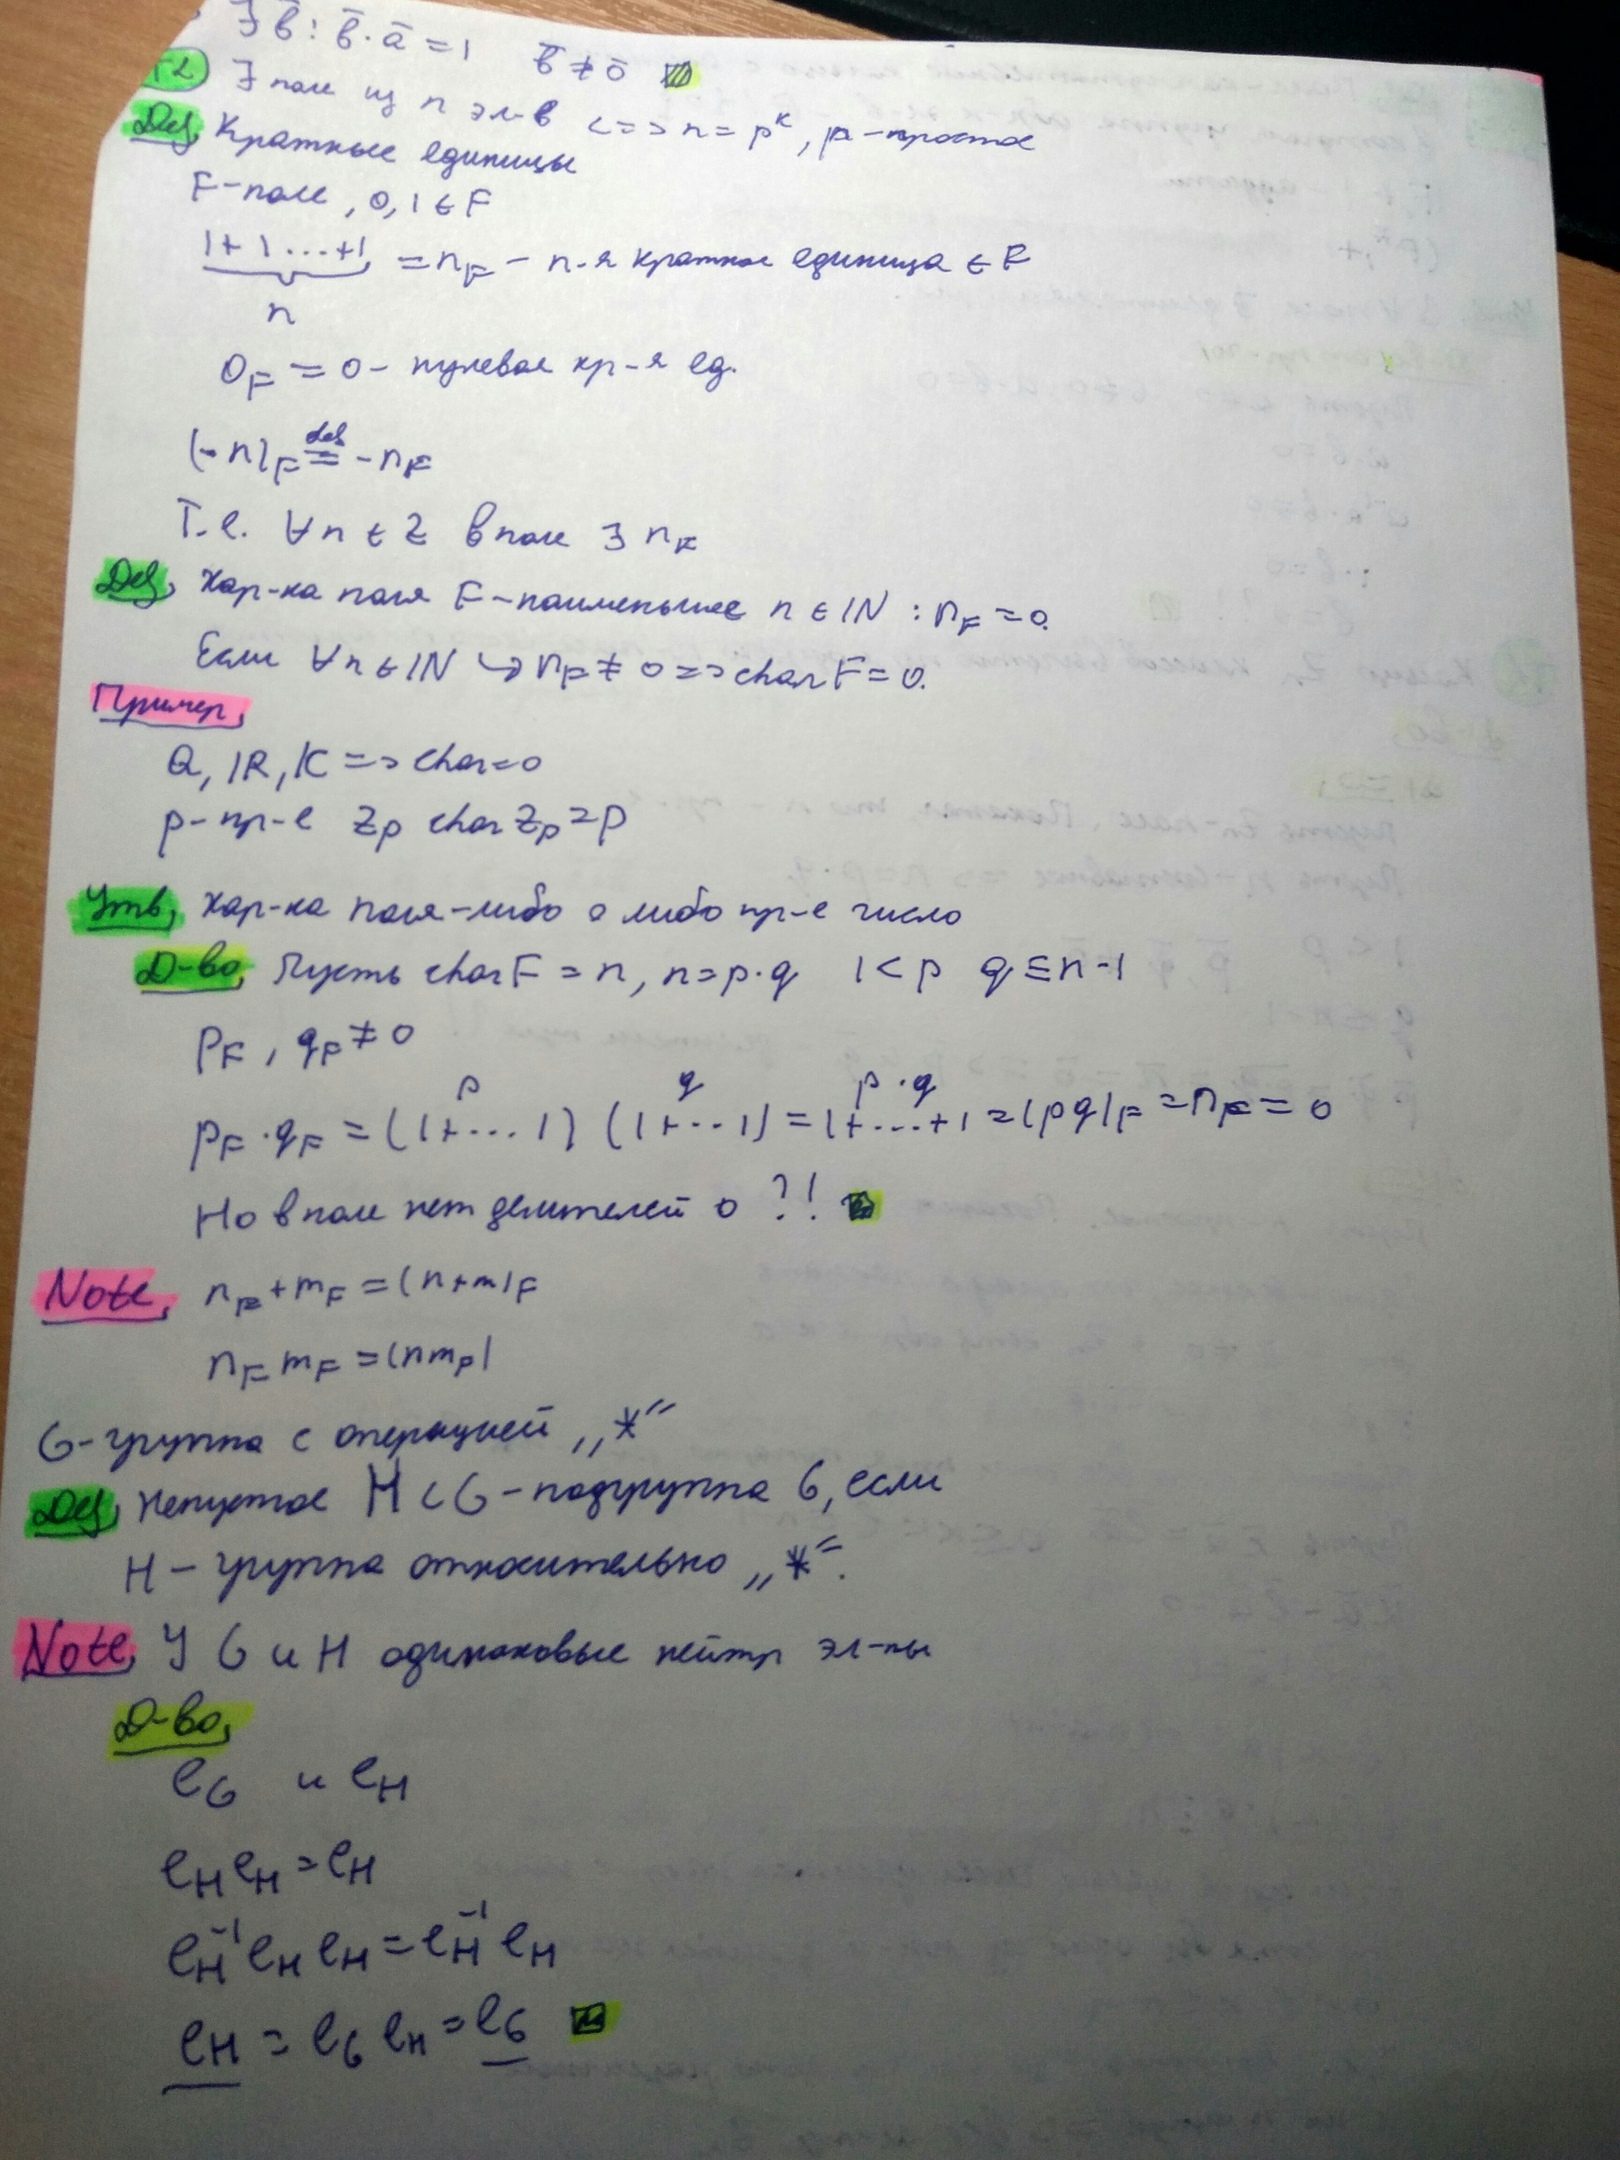 ∃ b̄ : b̄ · ā = 1   b̄ ≠ 0̄
T2 ∃ поле из n эл-в <=> n = p^k, p - простое
Def, Кратные единицы
F - поле, 0, 1 ∈ F
1 + 1 ... + 1 = n_F - n-я кратная единица ∈ F
n
0_F = 0 - нулевая кр-я ед.
(-n)_F def= -n_F
Т.е. ∀n ∈ Z в поле ∃ n_F
Def, Хар-ка поля F - наименьшее n ∈ IN : n_F = 0.
Если ∀n ∈ IN ↪ n_F ≠ 0 => char F = 0.
Пример,
Q, IR, C => char = 0
p - пр-е Z_p char Z_p = p
Утв, Хар-ка поля - либо 0 либо пр-е число
Д-во, Пусть char F = n, n = p · q   1 < p   q ≤ n-1
p_F, q_F ≠ 0
p   q   p · q
p_F · q_F = (1 + ... 1) (1 + ... 1) = 1 + ... + 1 = (pq)_F = n_F = 0
Но в поле нет делителей 0 ?!
Note, n_F + m_F = (n+m)_F
n_F m_F = (nm_F)
G - группа с операцией „*“
Def, Непустое H ⊂ G - подгруппа G, если
H - группа относительно „*“.
Note, У G и H одинаковые нейтр эл-ты
Д-во,
e_G и e_H
e_H e_H = e_H
e_H^-1 e_H e_H = e_H^-1 e_H
e_H = e_G e_H = e_G